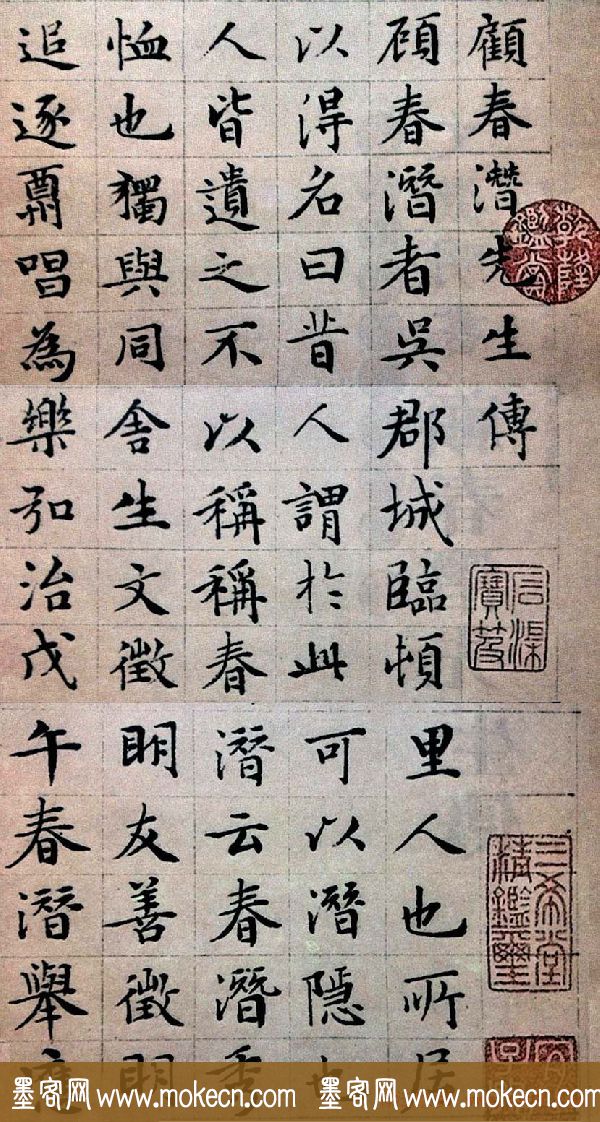 顧春潛先生傳
頋春潛者吳郡城臨頓里人也所居
以得名曰昔人謂於此可以潛隱也
人皆遺之不以稱稱春潛云春潛秀
恤也獨與同舍生文徵明友善徵明
追逐酬唱為樂弘治戊午春潛舉應
乾隆鑑賞
石渠寶笈
三希堂精鑑璽
墨客网 www.mokecn.com 墨客网 www.mokecn.com